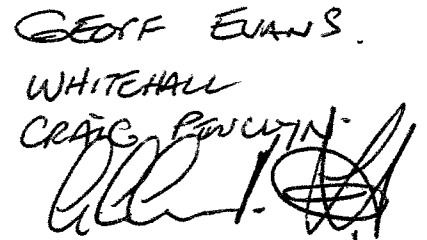 GEOFF EVANS.
WHITEHALL
CRAIG PENLLYN.